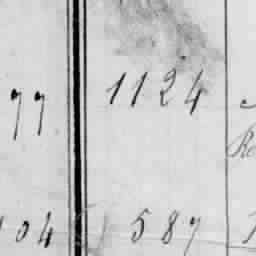 77 1124
104 587